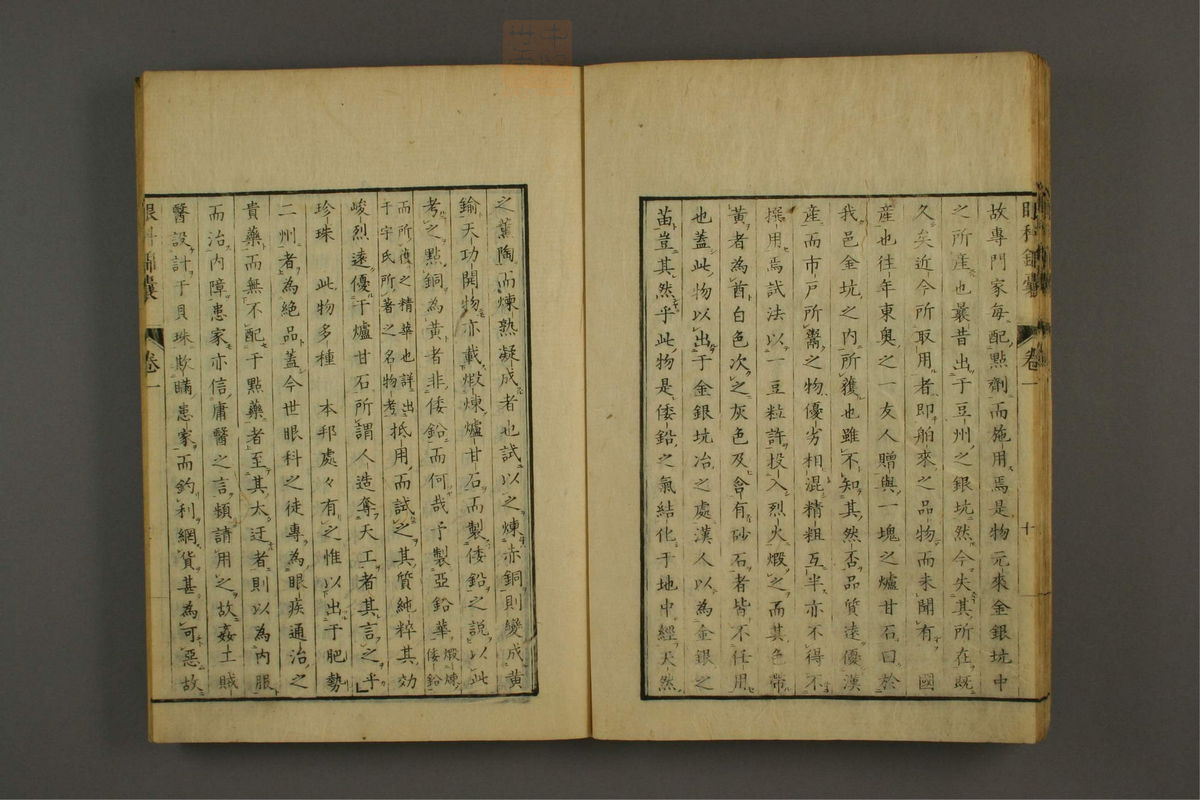 眼科錦囊 卷一 十
故專門家每配點劑而施用焉是物元來金銀坑中
之所產也曩昔出于豆州之銀坑然今失其所在既
久矣近今所取用者即舶來之品物而未聞有國
產也往年東奧之一友人贈與一塊之爐甘石曰於
我邑金坑之內所獲也雖不知其然否品質遠優漢
產而市戶所鬻之物優劣相混精粗互半亦不得不
撰用焉試法以一豆粒許投入烈火煅之而其色帶
黃者為酋白色次之灰色及含有砂石者皆不任用
也蓋此物以出于金銀坑冶之處漢人以為金銀之
苗豈其然乎此物是倭鉛之氣結化于地中經天然
之薰陶而煉熟凝成者也試以之煉赤銅則變成黃
鍮天功開物亦載煅煉爐甘石而製倭鉛之說以此
考之點銅為黃者非倭鉛而何哉予製亞鉛華煅煉倭鉛
而所復之精華也詳出于宇氏所著之名物考抵用而試之其質純粹其効
峻烈遠優于爐甘石所謂人造奪天工者其言之乎
珍珠 此物多種 本邦處々有之惟以出于肥勢
二州者為絕品蓋今世眼科之徒專為眼疾通治之
貴藥而無不配于點藥者至其太迂者則以為內服
而治內障患家亦信庸醫之言頻請用之故姦士賊
醫設計于貝珠欺瞞患家而釣利網貨甚為可惡故
眼科錦囊 卷一